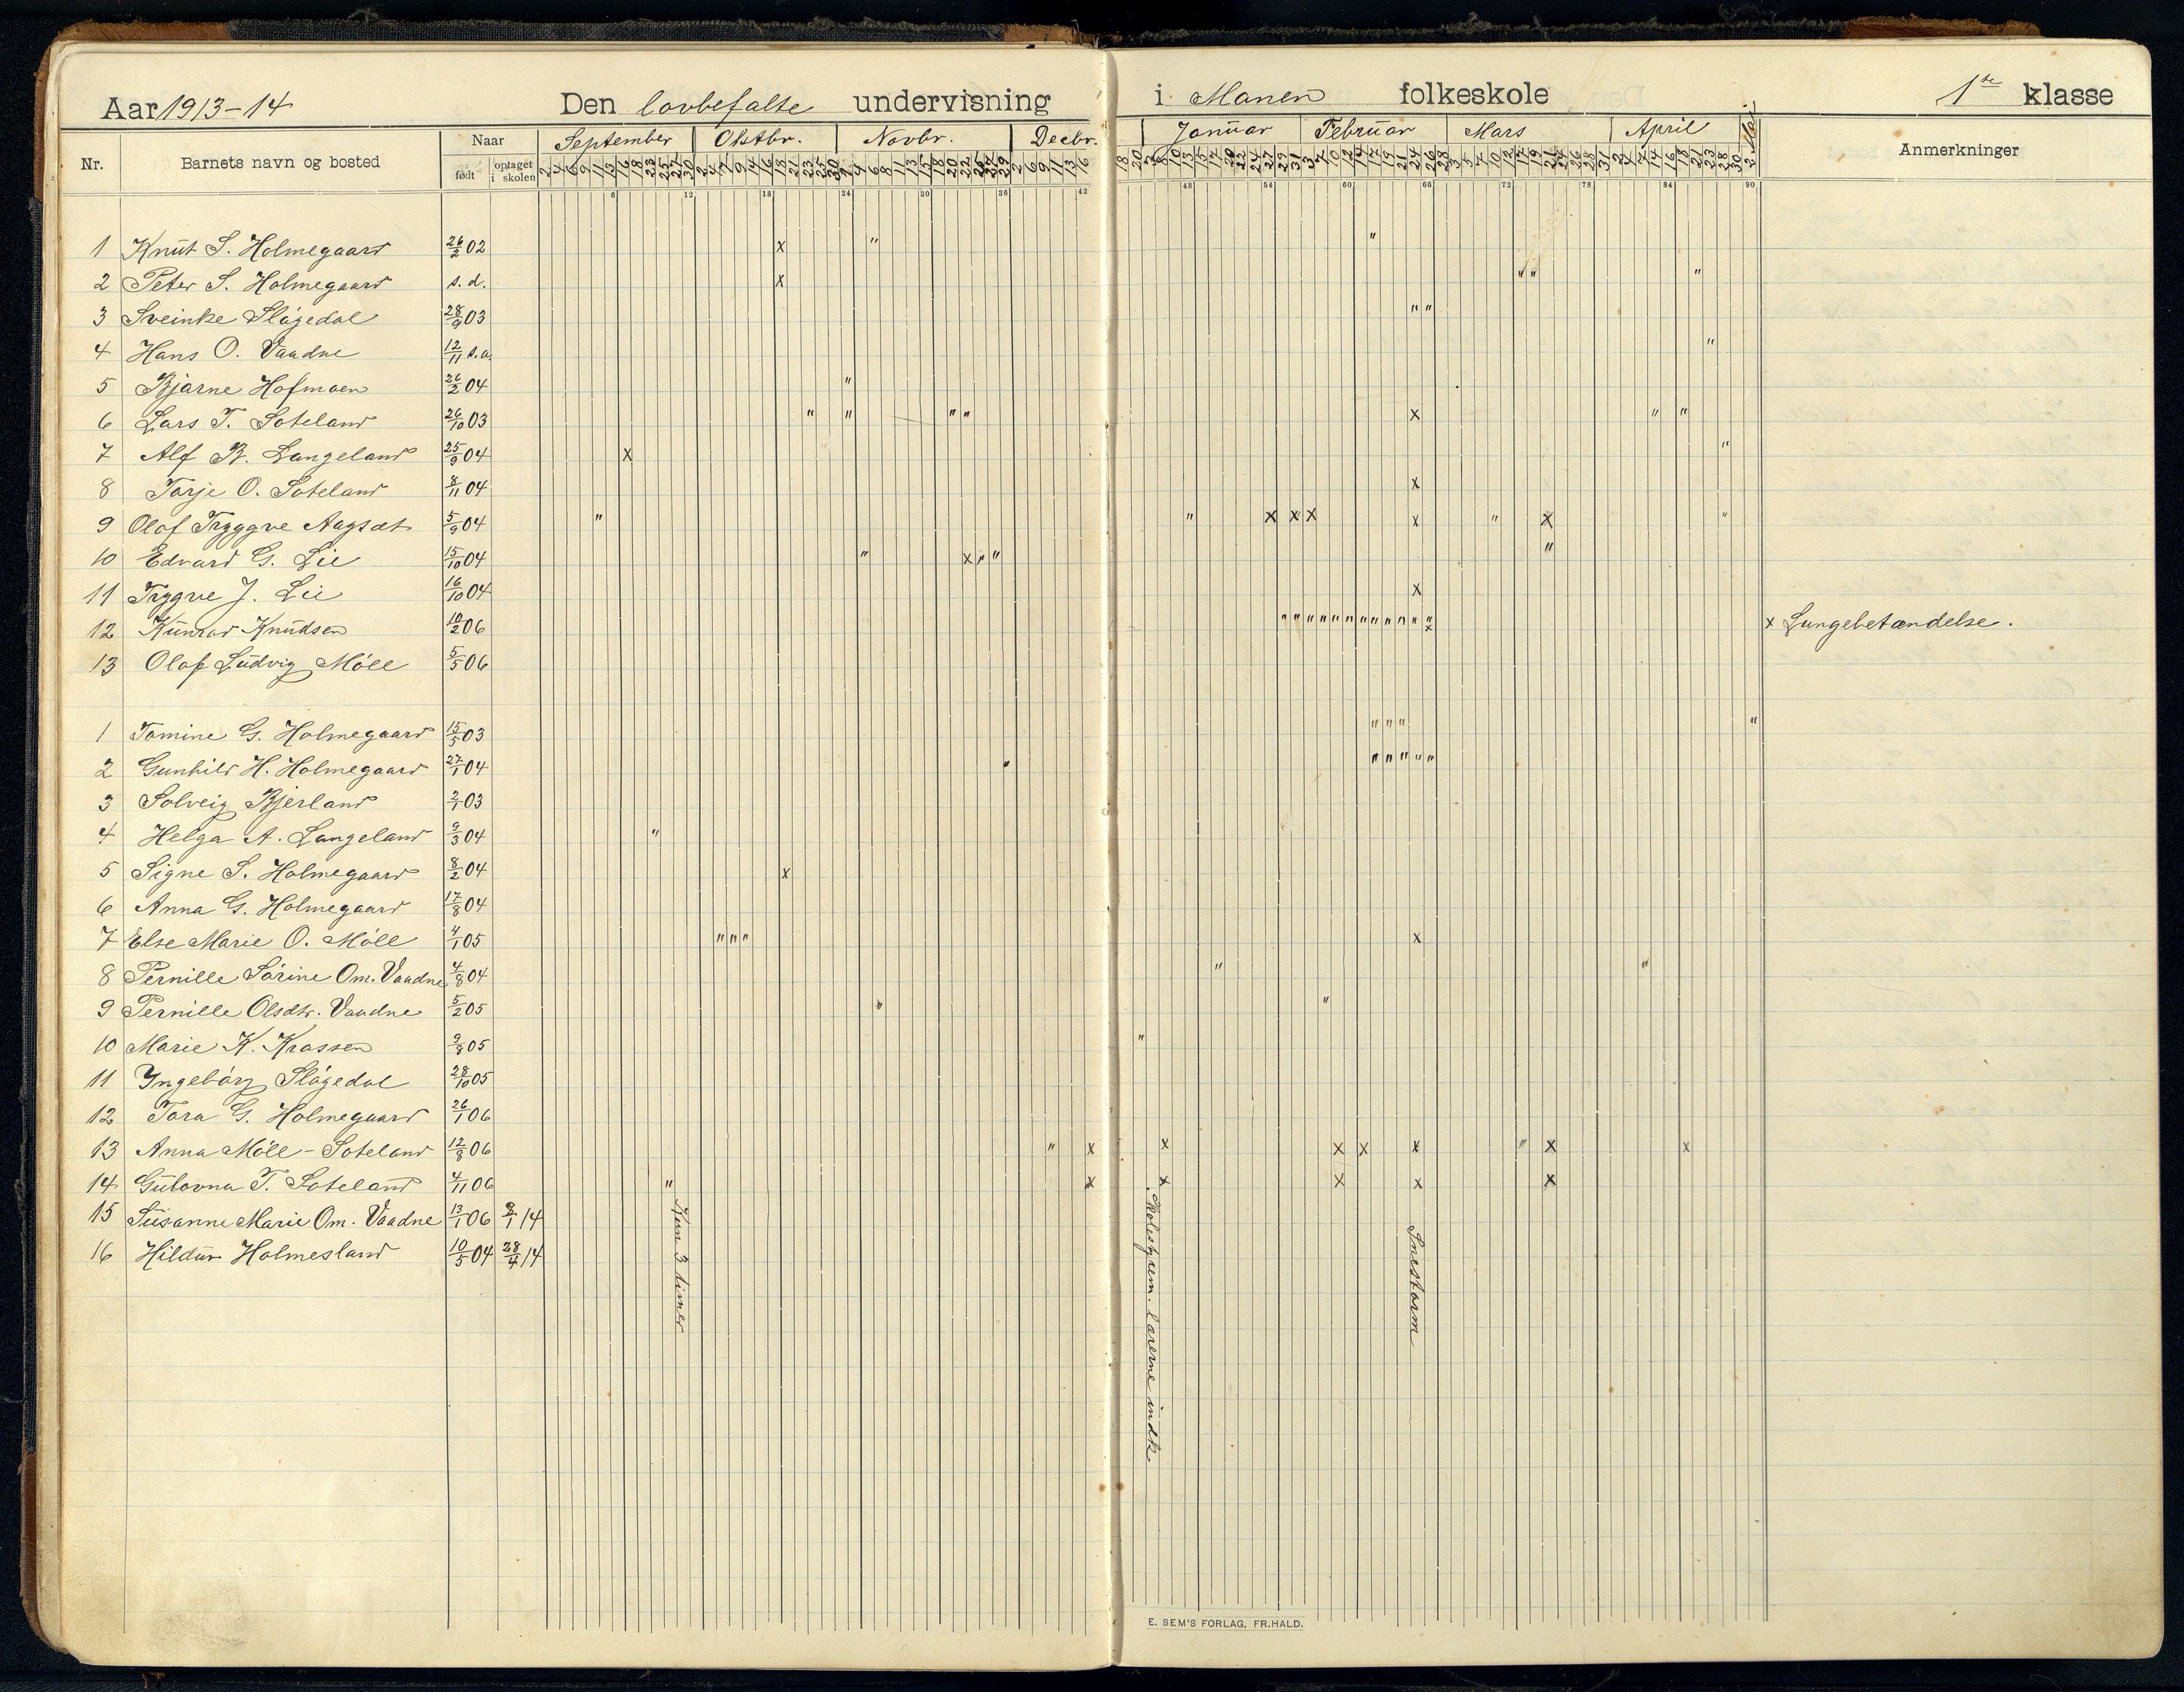 Aar 1913-14 Den lovbefalte undervisning i Monen folkeskole 1ste klasse
Nr. Barnets navn og bosted Naar født optaget i skolen September Oktbr. Novbr. Decbr. Januar Februar Mars April Mai Anmerkninger
6 12 18 24 30 36 42 48 54 60 66 72 78 84 90
1 Knut S. Holmegaard 26/2 02 x " "
2 Peter S. Holmegaard s.d. x " " "
3 Sveinke Slögedal 28/9 03 " "
4 Hans O. Vaadne 12/11 s.a. "
5 Bjarne Hofmoen 26/2 04 "
6 Lars T. Soteland 26/10 03 " " " " x " "
7 Alf B. Langeland 25/9 04 x "
8 Torje O. Soteland 8/11 04 x
9 Olaf Tryggve Aagsæt 5/9 04 " " x x x x " x "
10 Edvard G. Lie 15/10 04 " x " " "
11 Trygve J. Lie 16/10 04 x
12 Kunrad Knudsen 10/2 06 " " " " " " " " " " " " x x Lungebetændelse.
13 Olaf Ludvig Möll 5/5 06
1 Tomine G. Holmegaard 15/5 03 " " " "
2 Gunhild H. Holmegaard 27/1 04 " " " " " "
3 Solveig Bjerland 2/1 03
4 Helga A. Langeland 9/3 04 "
5 Signe S. Holmegaard 8/2 04 x
6 Anna G. Holmegaard 17/8 04
7 Else Marie O. Möll 4/1 05 " " " x
8 Pernille Sörine Om. Vaadne 4/8 04 " "
9 Pernille Olsdtr. Vaadne 5/2 05 " "
10 Marie K. Krossen 9/8 05 "
11 Yngebörg Slögedal 28/10 05
12 Tora G. Holmegaard 26/1 06
13 Anna Möll - Soteland 12/8 06 " x x x x x " x x
14 Gulovna T. Soteland 4/11 06 " x x x x x
15 Susanne Marie Om. Vaadne 13/1 06 8/1 14
16 Hildur Holmesland 10/5 04 28/4 14
Kun 3 timer
Skolestyrem. lærerne indk
Snestorm
E. SEM'S FORLAG, FR.HALD.